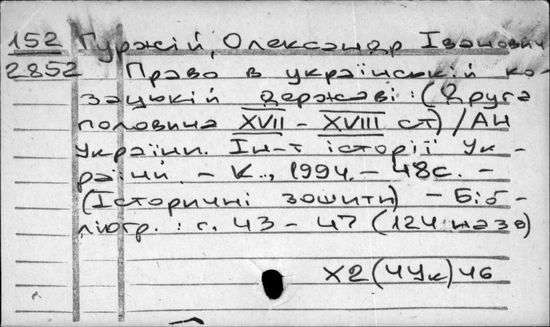 152 Гуржій, Олександр Іванович
2852 Право в українській ко-
зацькій державі: (Друга
половина XVII - XVIII ст) / АН
України. Ін-т історії Ук-
раїни. - К., 1994. - 48с. -
(Історичні зошити) - Біб-
ліогр.: с. 43 - 47 (124 назв)
Х2(4Ук)46